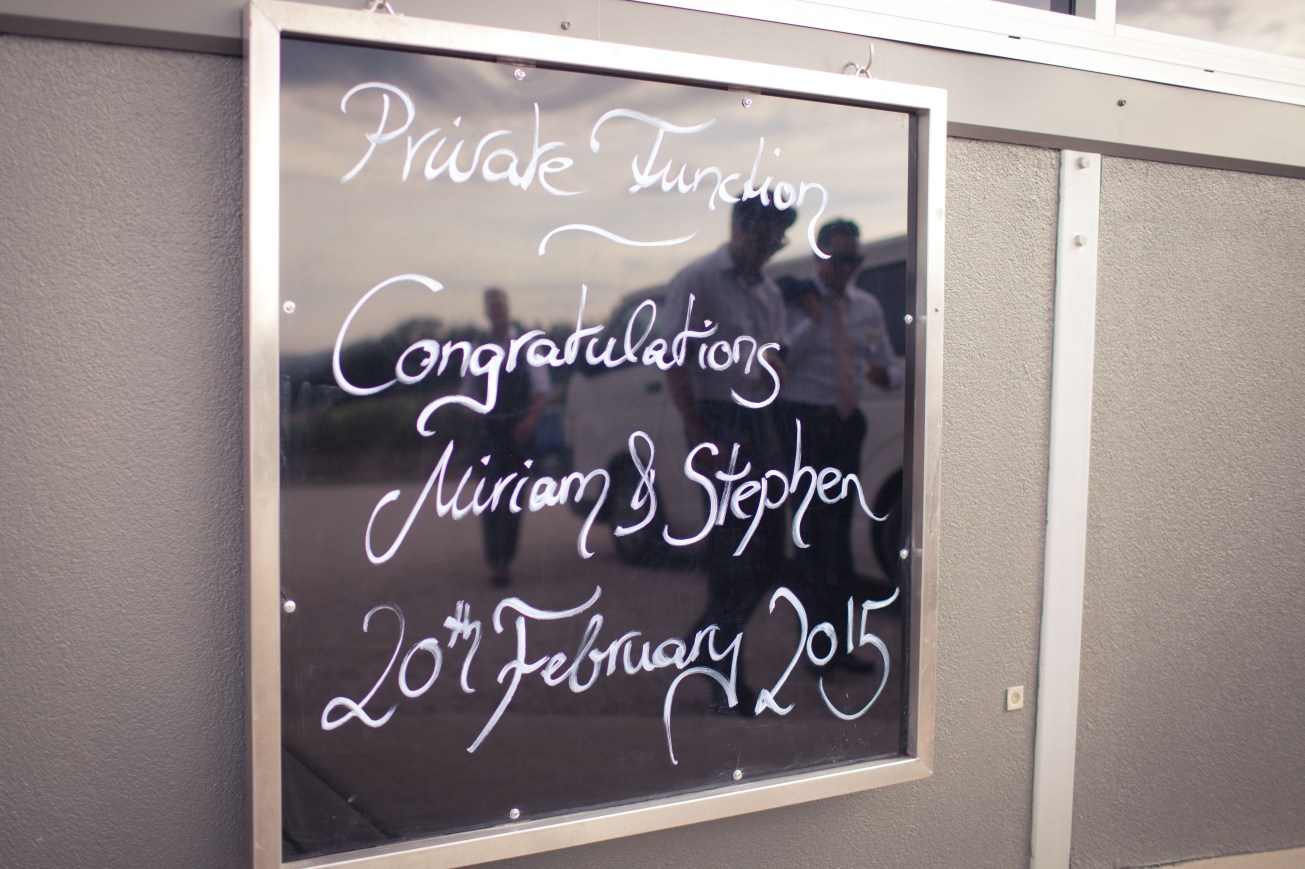 Private Function
Congratulations
Miriam & Stephen
20th February 2015